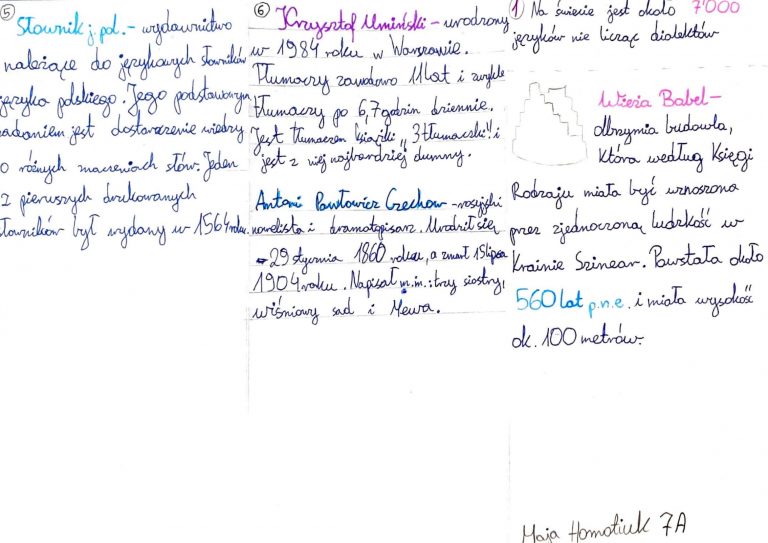 5
Słownik j. pol. - wydawnictwo
należące do językowych słowników
języka polskiego. Jego podstawowym
zadaniem jest dostarczenie wiedzy
o różnych znaczeniach słów. Jeden
z pierwszych drukowanych
słowników był wydany w 1564 roku.
6
Krzysztof Umiński - urodzony
w 1984 roku w Warszawie.
Tłumaczy zawodowo 11 lat i zwykle
tłumaczy po 6,7 godzin dziennie.
Jest tłumaczem książki „3 tłumaczki" i
jest z niej najbardziej dumny.
Antoni Pawłowicz Czechow - rosyjski
nowelista i dramatopisarz. Urodził się
29 stycznia 1860 roku, a zmarł 15 lipca
1904 roku. Napisał m.in.: trzy siostry,
wiśniowy sad i Mewa.
1) Na świecie jest około 7'000
języków nie licząc dialektów
Wieża Babel -
olbrzymia budowla,
która według Księgi
Rodzaju miała być wznoszona
przez zjednoczoną ludzkość w
Krainie Szinear. Powstała około
560 lat p.n.e. i miała wysokość
ok. 100 metrów.
Maja Homotiuk 7A